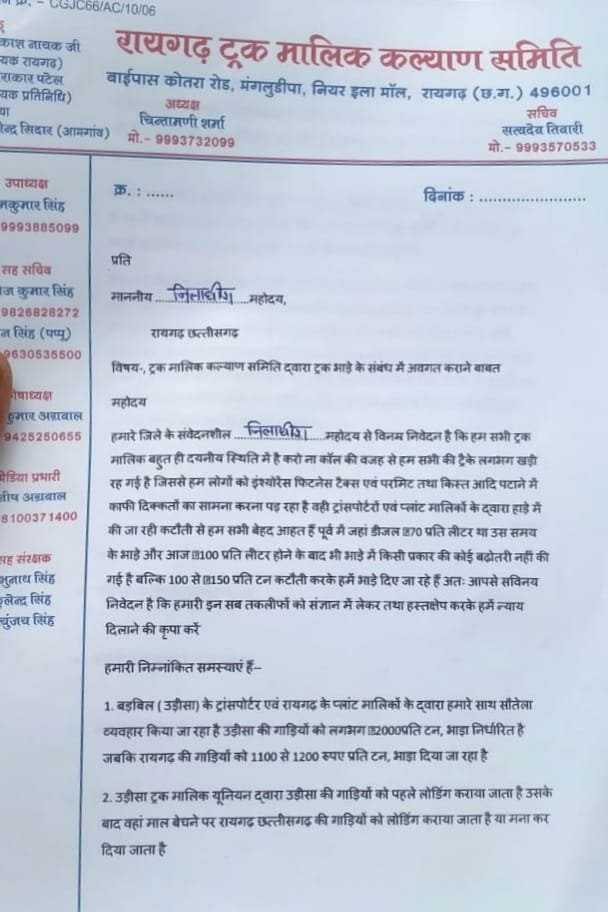 क्र. - CGJC66/AC/10/06
रायगढ़ ट्रक मालिक कल्याण समिति
बाईपास कोतरा रोड, मंगलुडीपा, नियर इला मॉल, रायगढ़ (छ.ग.) 496001
अध्यक्ष
चिन्तामणी शर्मा
मो.- 9993732099
सचिव
सत्यदेव तिवारी
मो.- 9993570533
नायक जी
रायगढ़)
पटेल
प्रतिनिधि)
सिदार (आमगांव)
उपाध्यक्ष
सिंह
9993885099
सह सचिव
कुमार सिंह
9826828272
सिंह (पप्पू)
9630535500
अग्रवाल
9425250655
प्रभारी
अग्रवाल
8100371400
संरक्षक
सिंह
सिंह
सिंह
क्र. : ......
दिनांक : ........................
प्रति
माननीय ......जिलाधीश......महोदय,
रायगढ़ छत्तीसगढ़
विषय-, ट्रक मालिक कल्याण समिति द्वारा ट्रक भाड़े के संबंध में अवगत कराने बाबत
महोदय
हमारे जिले के संवेदनशील ......जिलाधीश......महोदय से विनम्र निवेदन है कि हम सभी ट्रक
मालिक बहुत ही दयनीय स्थिति में है करो ना कॉल की वजह से हम सभी की ट्रैके लगभग खड़ी
रह गई है जिससे हम लोगों को इंश्योरेंस फिटनेस टैक्स एवं परमिट तथा किस्त आदि पटाने में
काफी दिक्कतों का सामना करना पड़ रहा है वही ट्रांसपोर्टरों एवं प्लांट मालिकों के द्वारा हाड़े में
की जा रही कटौती से हम सभी बेहद आहत हैं पूर्व में जहां डीजल 70 प्रति लीटर था उस समय
के भाड़े और आज 100 प्रति लीटर होने के बाद भी भाड़े में किसी प्रकार की कोई बढ़ोतरी नहीं की
गई है बल्कि 100 से 150 प्रति टन कटौती करके हमें भाड़े दिए जा रहे हैं अतः आपसे सविनय
निवेदन है कि हमारी इन सब तकलीफों को संज्ञान में लेकर तथा हस्तक्षेप करके हमें न्याय
दिलाने की कृपा करें
हमारी निम्नांकित समस्याएं हैं--
1. बड़बिल ( उड़ीसा) के ट्रांसपोर्टर एवं रायगढ़ के प्लांट मालिकों के द्वारा हमारे साथ सौतेला
व्यवहार किया जा रहा है उड़ीसा की गाड़ियों को लगभग 2000प्रति टन, भाड़ा निर्धारित है
जबकि रायगढ़ की गाड़ियों को 1100 से 1200 रुपए प्रति टन, भाड़ा दिया जा रहा है
2. उड़ीसा ट्रक मालिक यूनियन द्वारा उड़ीसा की गाड़ियों को पहले लोडिंग कराया जाता है उसके
बाद वहां माल बेचने पर रायगढ़ छत्तीसगढ़ की गाड़ियों को लोडिंग कराया जाता है या मना कर
दिया जाता है